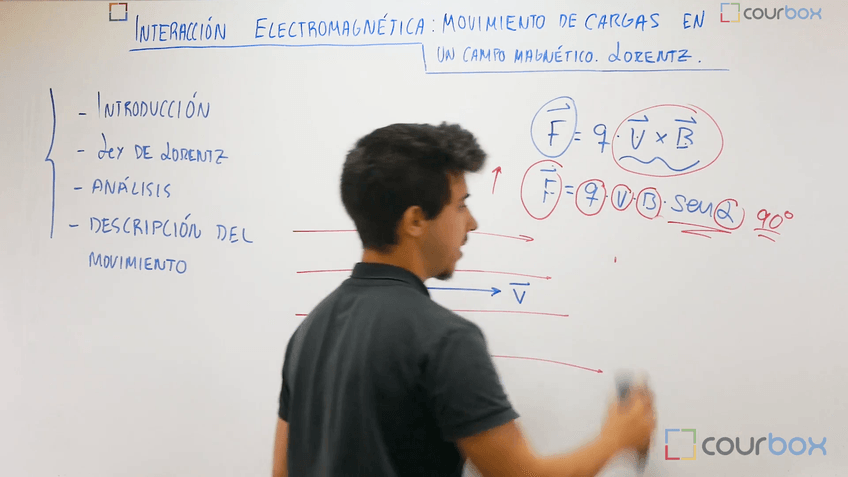 INTERACCIÓN ELECTROMAGNÉTICA: MOVIMIENTO DE CARGAS EN
UN CAMPO MAGNÉTICO. LORENTZ.
courbox
- INTRODUCCIÓN
- LEY DE LORENTZ
- ANÁLISIS
- DESCRIPCIÓN DEL
MOVIMIENTO
F⃗ = q · V⃗ × B⃗
F⃗ = q · V · B · sen α 90°
V⃗
courbox